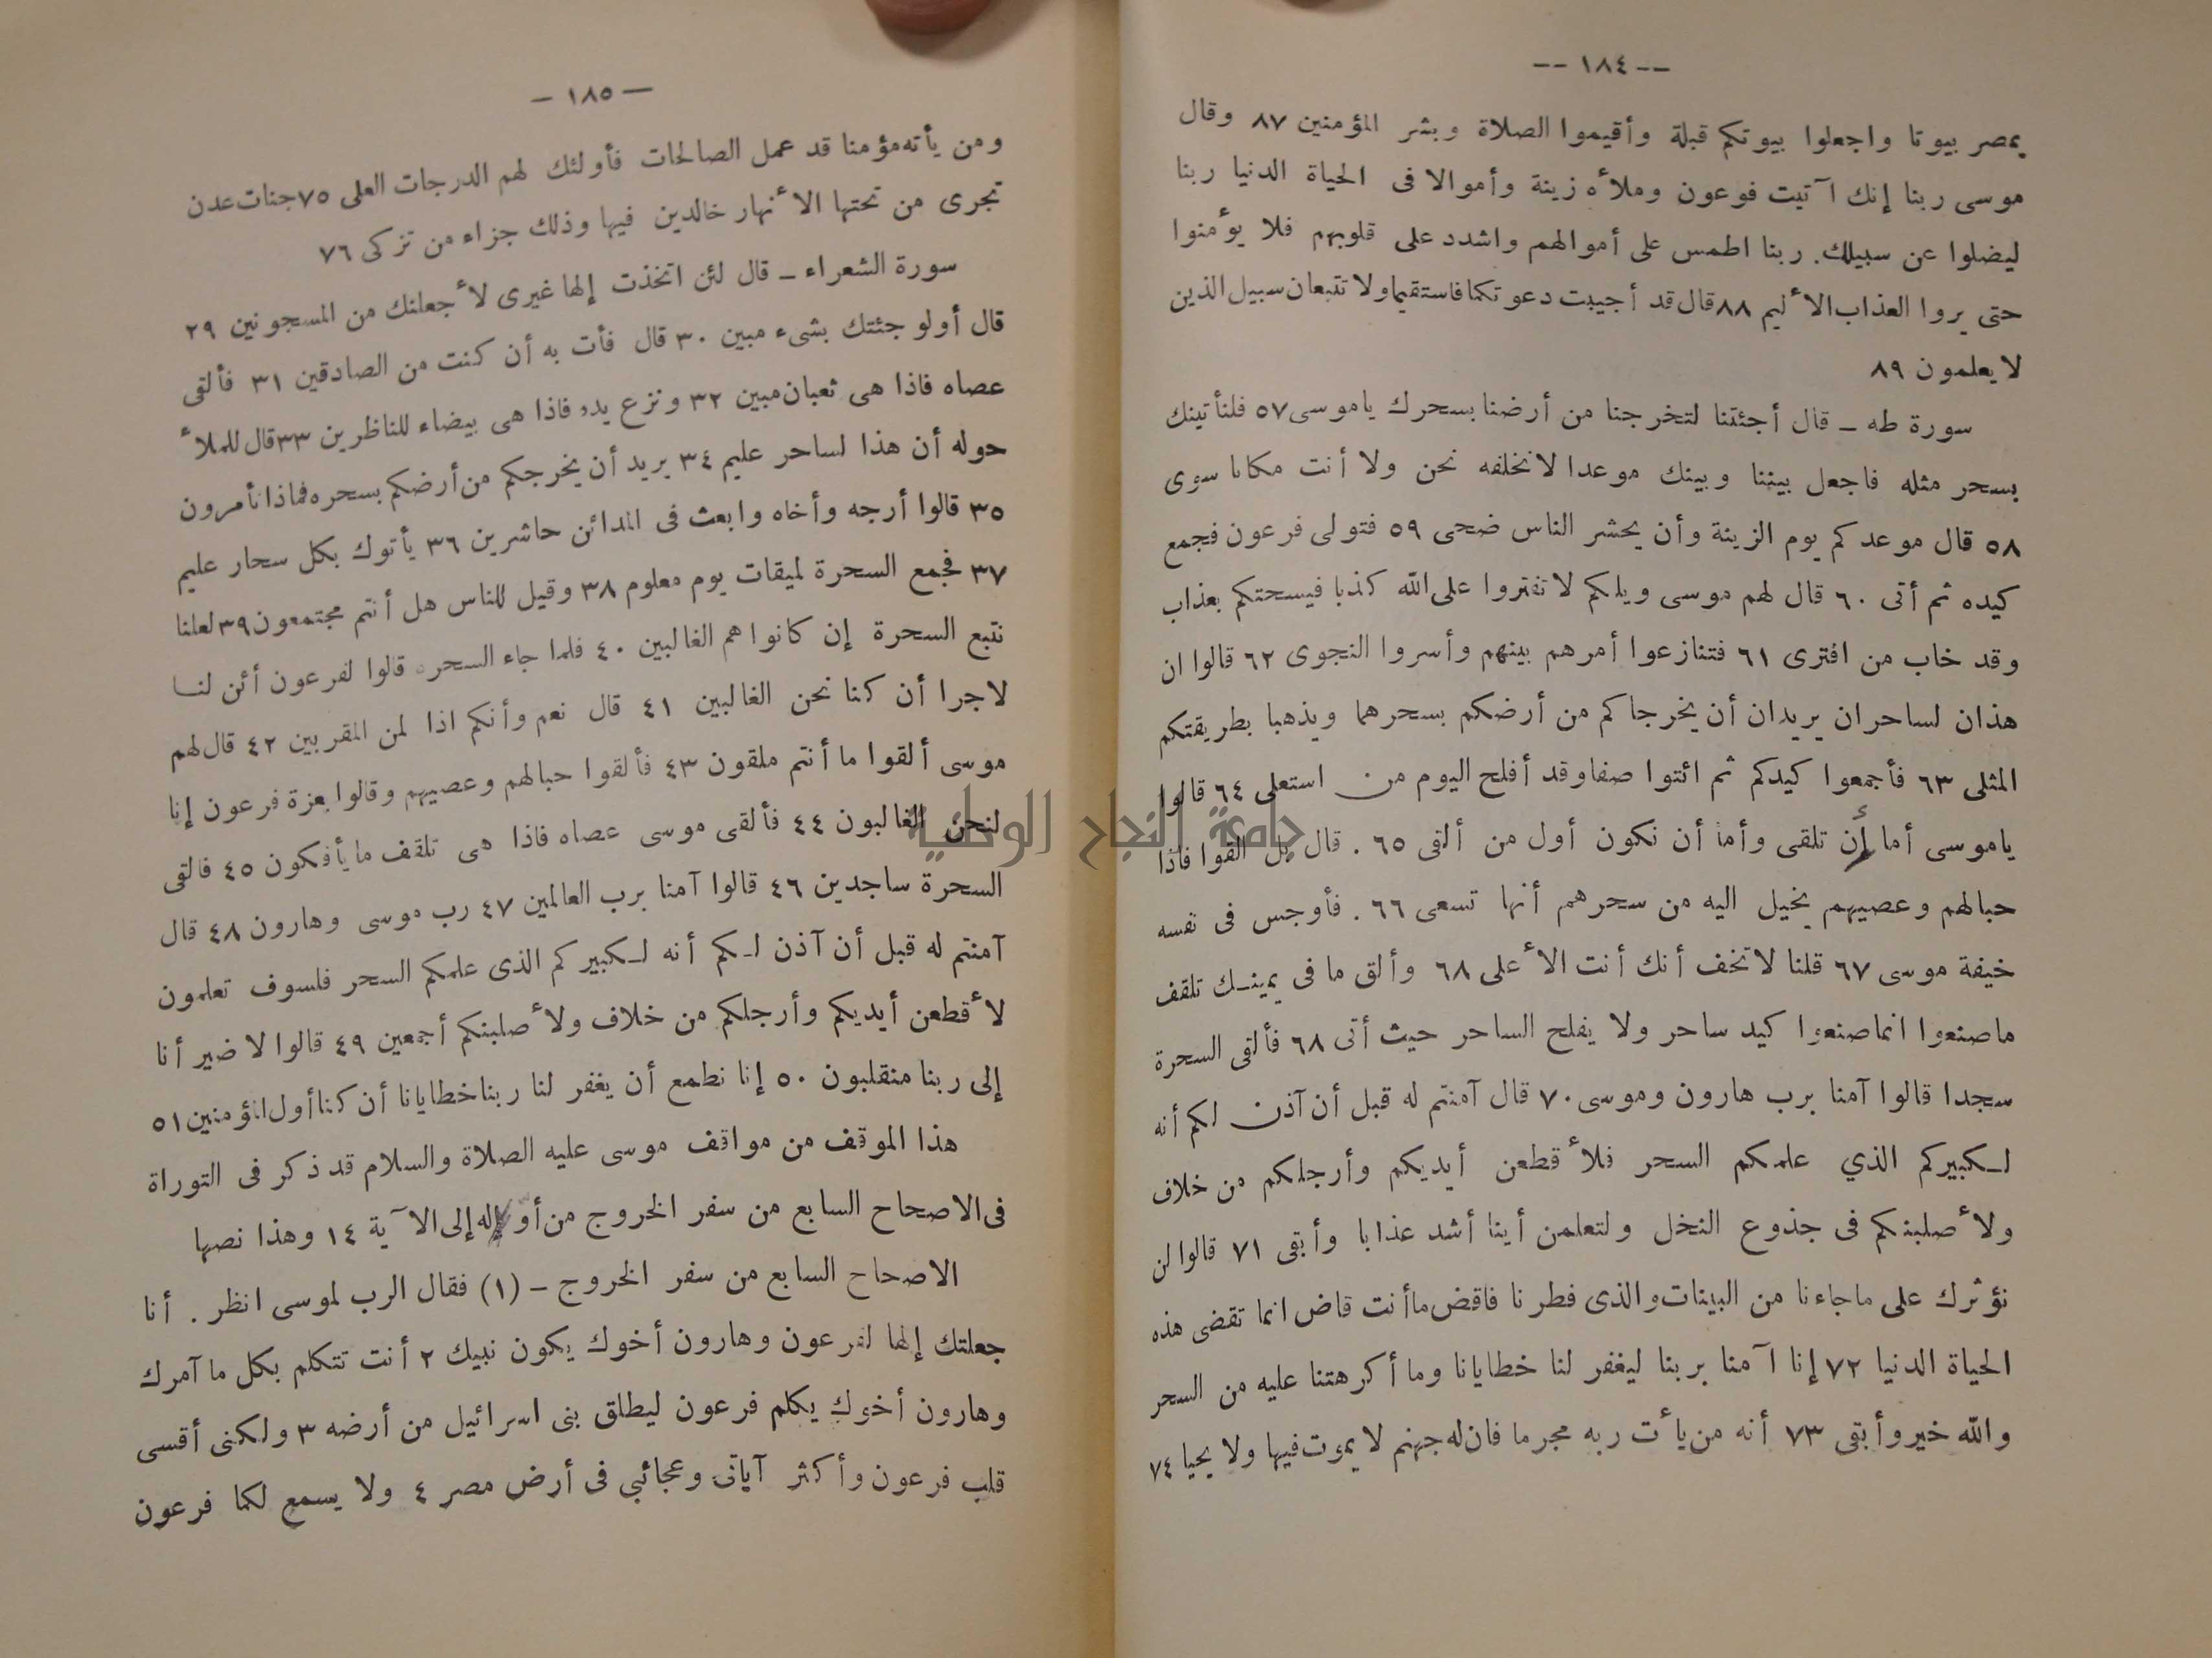 -- ١٨٤ --
بمصر بيوتا واجعلوا بيوتكم قبلة وأقيموا الصلاة وبشر المؤمنين ٨٧ وقال
موسى ربنا إنك آتيت فوعون وملأه زينة وأموالا فى الحياة الدنيا ربنا
ليضلوا عن سبيلك. ربنا اطمس على أموالهم واشدد على قلوبهم فلا يؤمنوا
حتى يروا العذاب الأليم ٨٨ قال قد أجيبت دعوتكما فاستقيما ولا تتبعان سبيل الذين
لا يعلمون ٨٩
سورة طه ــ قال أجئتنا لتخرجنا من أرضنا بسحرك ياموسى ٥٧ فلنأتينك
بسحر مثله فاجعل بيننا وبينك موعدا لا نخلفه نحن ولا أنت مكانا سوى
٥٨ قال موعدكم يوم الزينة وأن يحشر الناس ضحى ٥٩ فتولى فرعون فجمع
كيده ثم أتى ٦٠ قال لهم موسى ويلكم لا تفتروا على الله كذبا فيسحتكم بعذاب
وقد خاب من افترى ٦١ فتنازعوا أمرهم بينهم وأسروا النجوى ٦٢ قالوا ان
هذان لساحران يريدان أن يخرجاكم من أرضكم بسحرهما ويذهبا بطريقتكم
المثلى ٦٣ فأجمعوا كيدكم ثم ائتوا صفا وقد أفلح اليوم من استعلى ٦٤ قالوا
ياموسى أما أن تلقى وأما أن نكون أول من ألقى ٦٥ . قال بل القوا فاذا
حبالهم وعصيهم يخيل اليه من سحرهم أنها تسعى ٦٦ . فأوجس فى نفسه
خيفة موسى ٦٧ قلنا لا تخف أنك أنت الأعلى ٦٨ وألق ما فى يمينـك تلقف
ماصنعوا انما صنعوا كيد ساحر ولا يفلح الساحر حيث أتى ٦٨ فألقى السحرة
سجدا قالوا آمنا برب هارون وموسى ٧٠ قال آمنتم له قبل أن آذن لكم أنه
لـكبيركم الذي علمكم السحر فلأقطعن أيديكم وأرجلكم من خلاف
ولأصلبنكم فى جذوع النخل ولتعلمن أينا أشد عذابا وأبقى ٧١ قالوا لن
نؤثرك على ماجاءنا من البينات والذى فطرنا فاقض ماأنت قاض انما تقضى هذه
الحياة الدنيا ٧٢ إنا آمنا بربنا ليغفر لنا خطايانا وما أكرهتنا عليه من السحر
والله خير وأبقى ٧٣ أنه من يأت ربه مجرما فان له جهنم لا يموت فيها ولا يحيا ٧٤
— ١٨٥ —
ومن يأته مؤمنا قد عمل الصالحات فأولئك لهم الدرجات العلى ٧٥ جنات عدن
تجرى من تحتها الأنهار خالدين فيها وذلك جزاء من تزكى ٧٦
سورة الشعراء ــ قال لئن اتخذت إلها غيرى لأجعلنك من المسجونين ٢٩
قال أولو جئتك بشىء مبين ٣٠ قال فأت به أن كنت من الصادقين ٣١ فألقى
عصاه فاذا هى ثعبان مبين ٣٢ ونزع يده فاذا هى بيضاء للناظرين ٣٣ قال للملأ
حوله أن هذا لساحر عليم ٣٤ يريد أن يخرجكم من أرضكم بسحره فماذا تأمرون
٣٥ قالوا أرجه وأخاه وابعث فى المدائن حاشرين ٣٦ يأتوك بكل سحار عليم
٣٧ فجمع السحرة لميقات يوم معلوم ٣٨ وقيل للناس هل أنتم مجتمعون ٣٩ لعلنا
نتبع السحرة إن كانوا هم الغالبين ٤٠ فلما جاء السحرة قالوا لفرعون أئن لنـا
لاجرا أن كنا نحن الغالبين ٤١ قال نعم وأنكم اذا لمن المقربين ٤٢ قال لهم
موسى ألقوا ما أنتم ملقون ٤٣ فألقوا حبالهم وعصيهم وقالوا بعزة فرعون إنا
لنحن الغالبون ٤٤ فألقى موسى عصاه فاذا هى تلقف ما يأفكون ٤٥ فالقى
السحرة ساجدين ٤٦ قالوا آمنا برب العالمين ٤٧ رب موسى وهارون ٤٨ قال
آمنتم له قبل أن آذن لـكم أنه لـكبيركم الذى علمكم السحر فلسوف تعلمون
لأقطعن أيديكم وأرجلكم من خلاف ولأصلبنكم أجمعين ٤٩ قالوا لا ضير أنا
إلى ربنا منقلبون ٥٠ إنا نطمع أن يغفر لنا ربنا خطايانا أن كنا أول المؤمنين ٥١
هذا الموقف من مواقف موسى عليه الصلاة والسلام قد ذكر فى التوراة
فى الاصحاح السابع من سفر الخروج من أوله إلى الآية ١٤ وهذا نصها
الاصحاح السابع من سفر الخروج – (١) فقال الرب لموسى انظر . أنا
جعلتك إلها لفرعون وهارون أخوك يكون نبيك ٢ أنت تتكلم بكل ما آمرك
وهارون أخوك يكلم فرعون ليطلق بنى اسرائيل من أرضه ٣ ولكنى أقسى
قلب فرعون وأكثر آياتى وعجائبي فى أرض مصر ٤ ولا يسمع لكما فرعون
جامعة النجاح الوطنية